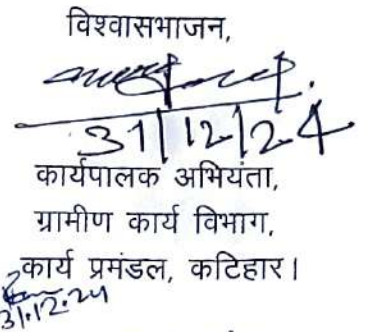 विश्वासभाजन,
31/12/24
कार्यपालक अभियंता,
ग्रामीण कार्य विभाग,
कार्य प्रमंडल, कटिहार।
31.12.24